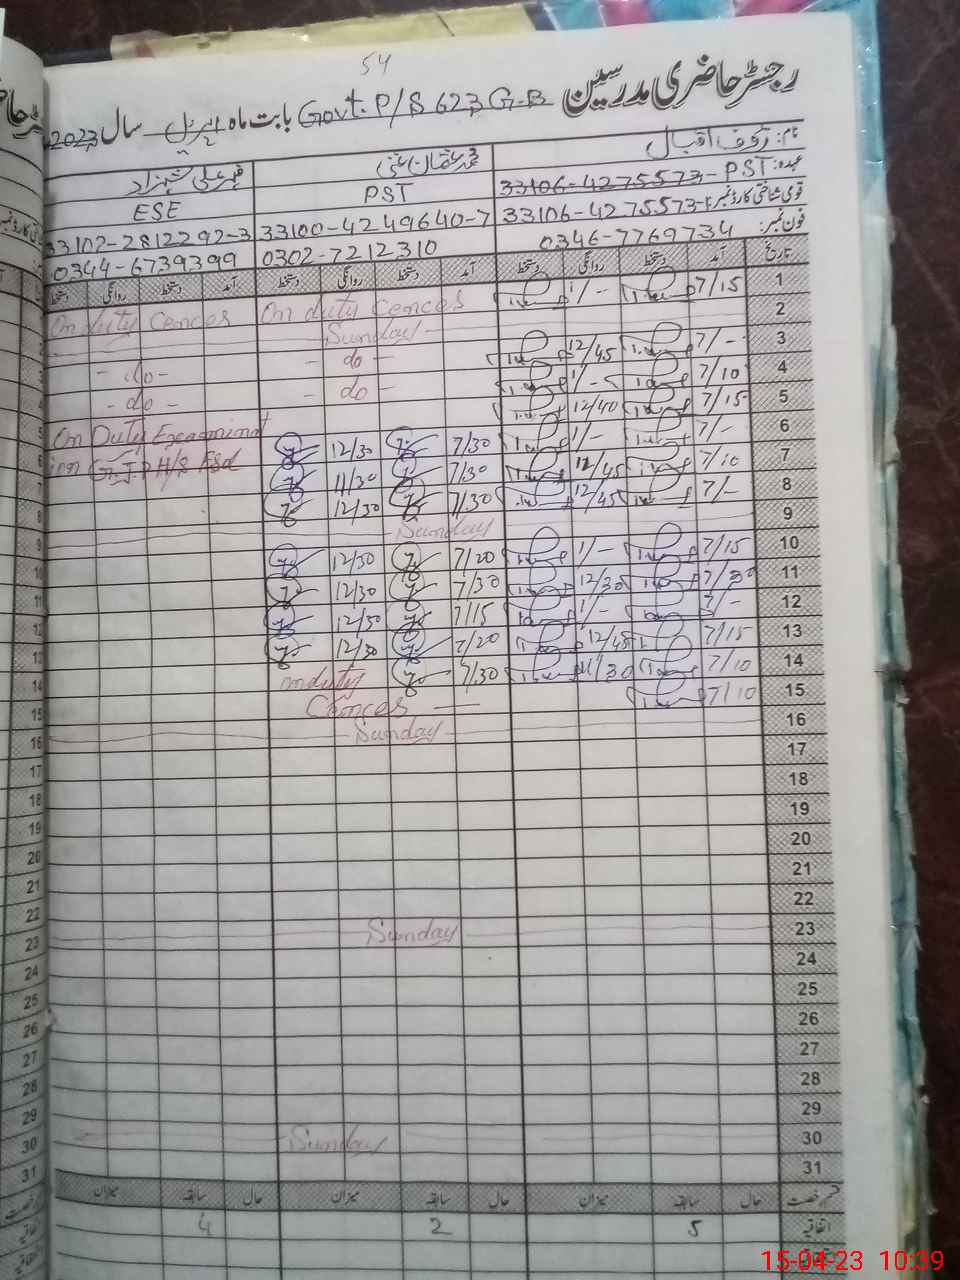 54
رجسٹر حاضری مدرسین Govt. P/S 623 G.B بابت ماہ اپریل سال 2023
نام: رؤف اقبال محمد عثمان غنی علی شہزاد
عہدہ: 33106-4275573- PST PST ESE
قومی شناختی کارڈ نمبر 33106-4275573- 33100-4249640-7 33102-2812292-3
فون نمبر: 0346-7769734 0302-7212310 0344-6739399
تاریخ آمد دستخط روانگی دستخط آمد دستخط روانگی دستخط آمد دستخط روانگی دستخط
1 7/15 1/- On duty Cences On duty Cences
2 Sunday
3 7/- 12/45 - do - - do -
4 7/10 1/- - do - - do -
5 7/15 12/40
6 7/- 1/- 7/30 12/30 On Duty Examinat
7 7/10 12/45 7/30 11/30 ion G.J.P H/S Fsd
8 7/- 12/45 7/30 12/30
9 Sunday
10 7/15 1/- 7/20 12/30
11 7/30 12/30 7/30 12/30
12 7/- 1/- 7/15 12/30
13 7/15 12/45 7/20 12/30
14 7/10 11/30 7/30 onduty
15 7/10 Cences
16 Sunday
17
18
19
20
21
22
23 Sunday
24
25
26
27
28
29
30 Sunday
31
قسم رخصت حال سابقہ میزان حال سابقہ میزان حال سابقہ میزان
اتفاقیہ 5 2 4
15-04-23 10:39